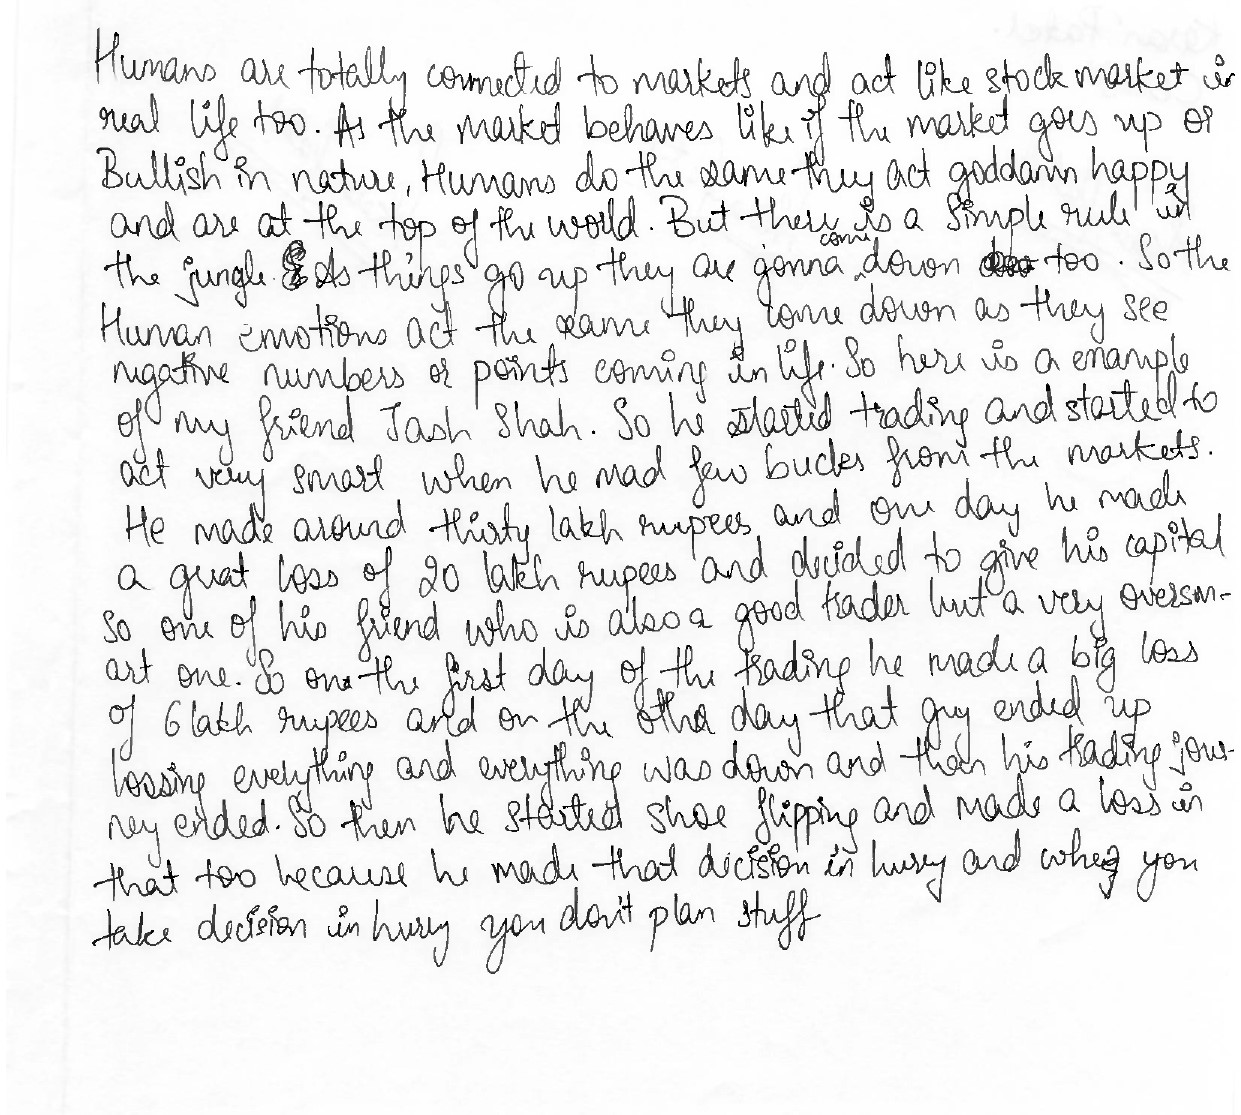 Humans are totally connected to markets and act like stock market in
real life too. As the market behaves like if the market goes up or
Bullish in nature, Humans do the same they act goddamn happy
and are at the top of the world. But there is a simple rule in
the jungle. As things go up they are gonna come down too. So the
Human emotions act the same they come down as they see
negative numbers or points coming in life. So here is a example
of my friend Jash Shah. So he started trading and started to
act very smart when he mad few bucks from the markets.
He made around thirty lakh rupees and one day he made
a great loss of 20 lakh rupees and decided to give his capital
so one of his friend who is also a good trader but a very oversm-
art one. So on the first day of the trading he made a big loss
of 6 lakh rupees and on the otha day that guy ended up
lossing everything and everything was down and then his trading jour-
ney ended. So then he started shoe flipping and made a loss in
that too because he made that decision in hurry and when you
take decision in hurry you don't plan stuff